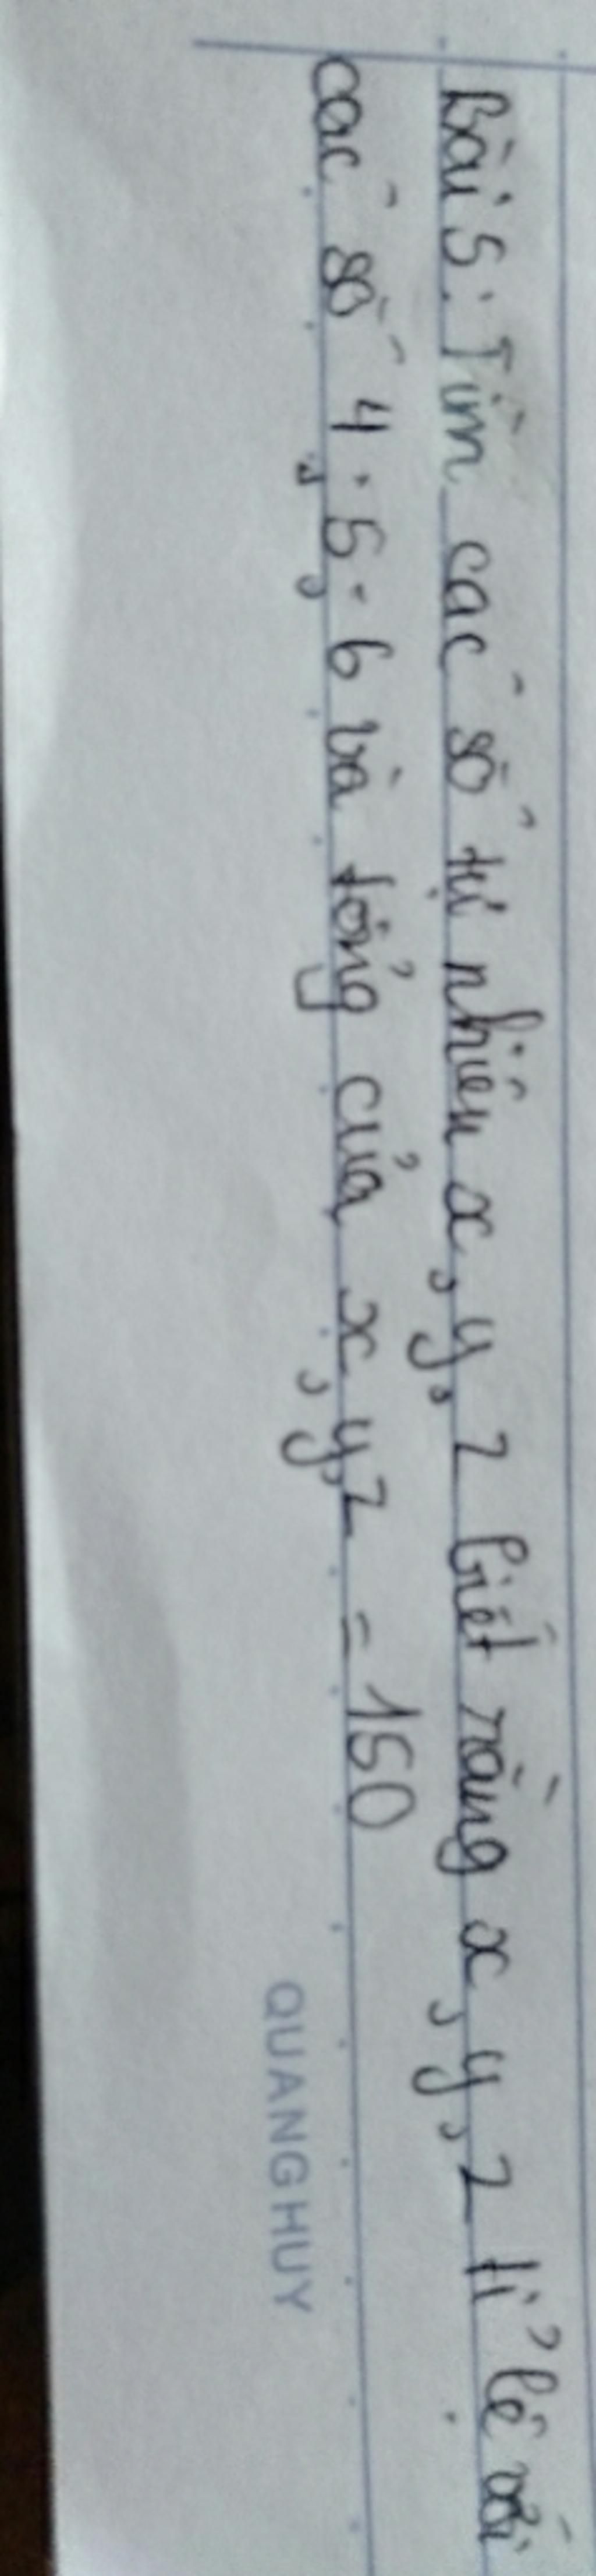 Bài 5: Tìm các số tự nhiên x, y, z biết rằng x, y, z tỉ lệ với
các số 4; 5; 6 và tổng của x, y, z = 150
QUANG HUY